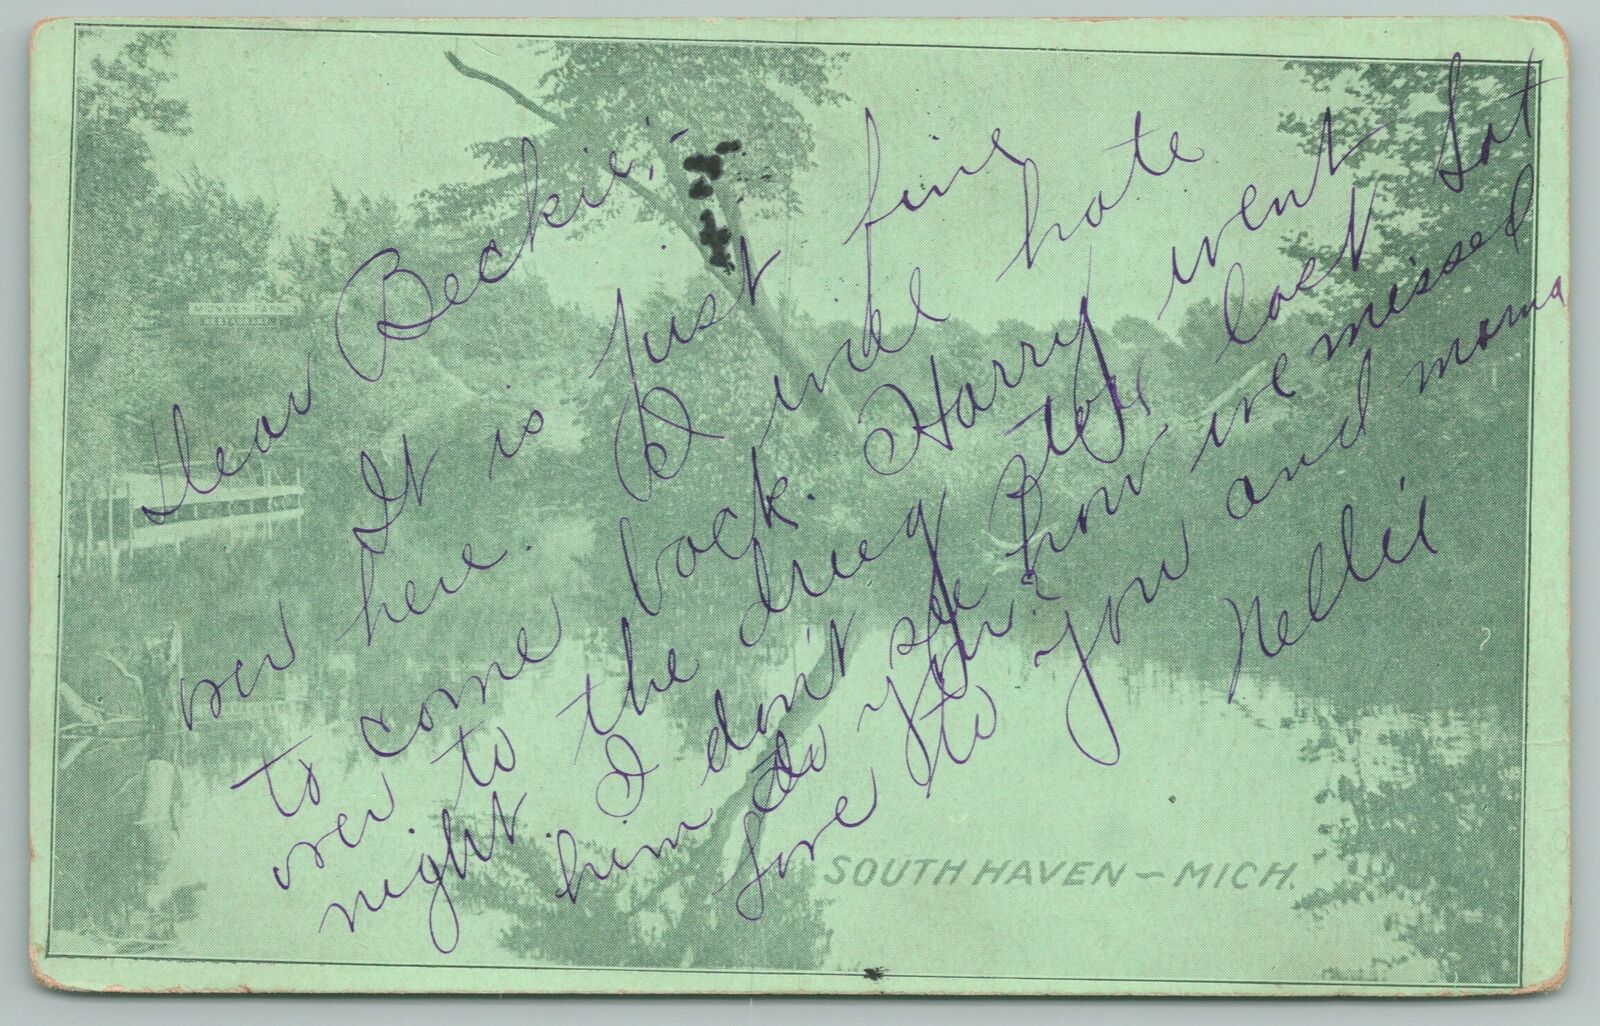 Dear Beckie:-
It is just fine
over here. I will hate
to come back. Harry went
over to the drug store last Sat
night. I don't see how we missed
him do you?
Love to you and mama
Nellie
SOUTH HAVEN – MICH.